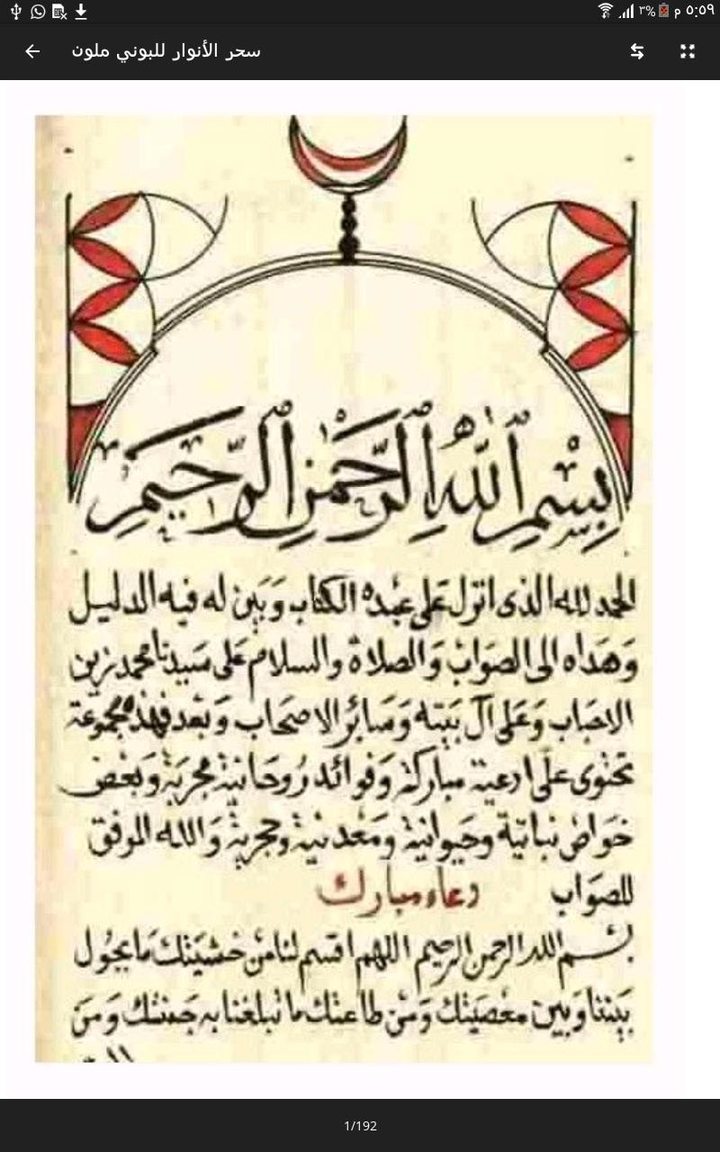 ٥:٥٩ م ٣%
سحر الأنوار للبوني ملون
بِسْمِ اللَّهِ الرَّحْمٰنِ الرَّحِيمِ
الحمد لله الذى انزل عَلى عبْده الكتاب وَبَين له فيه الدليل
وَهَداه الى الصَوَابْ وَالصلاة والسلام عَلى سَيدنا محمد زين
الاحباب وَعَلى آل بَيته وَسَائر الاصحَاب وَبَعد فهذه مجموعة
تحتوى على ادعية مباركة وَفوائد رُوحَانية مجربَة وَبَعْض
خوَاص نباتية وحيوانية وَمَعْدنية وحجرية وَالله الموفق
للصوَاب
دعاء مبارك
بسم الله الرحمن الرحيم اللهم اقسم لنا من خشيَتك مَا يحُول
بَيْننا وَبين مَعصَيتك وَمَنْ طاعتك ما تبلغنا به جَنتك وَمنَ
1/192